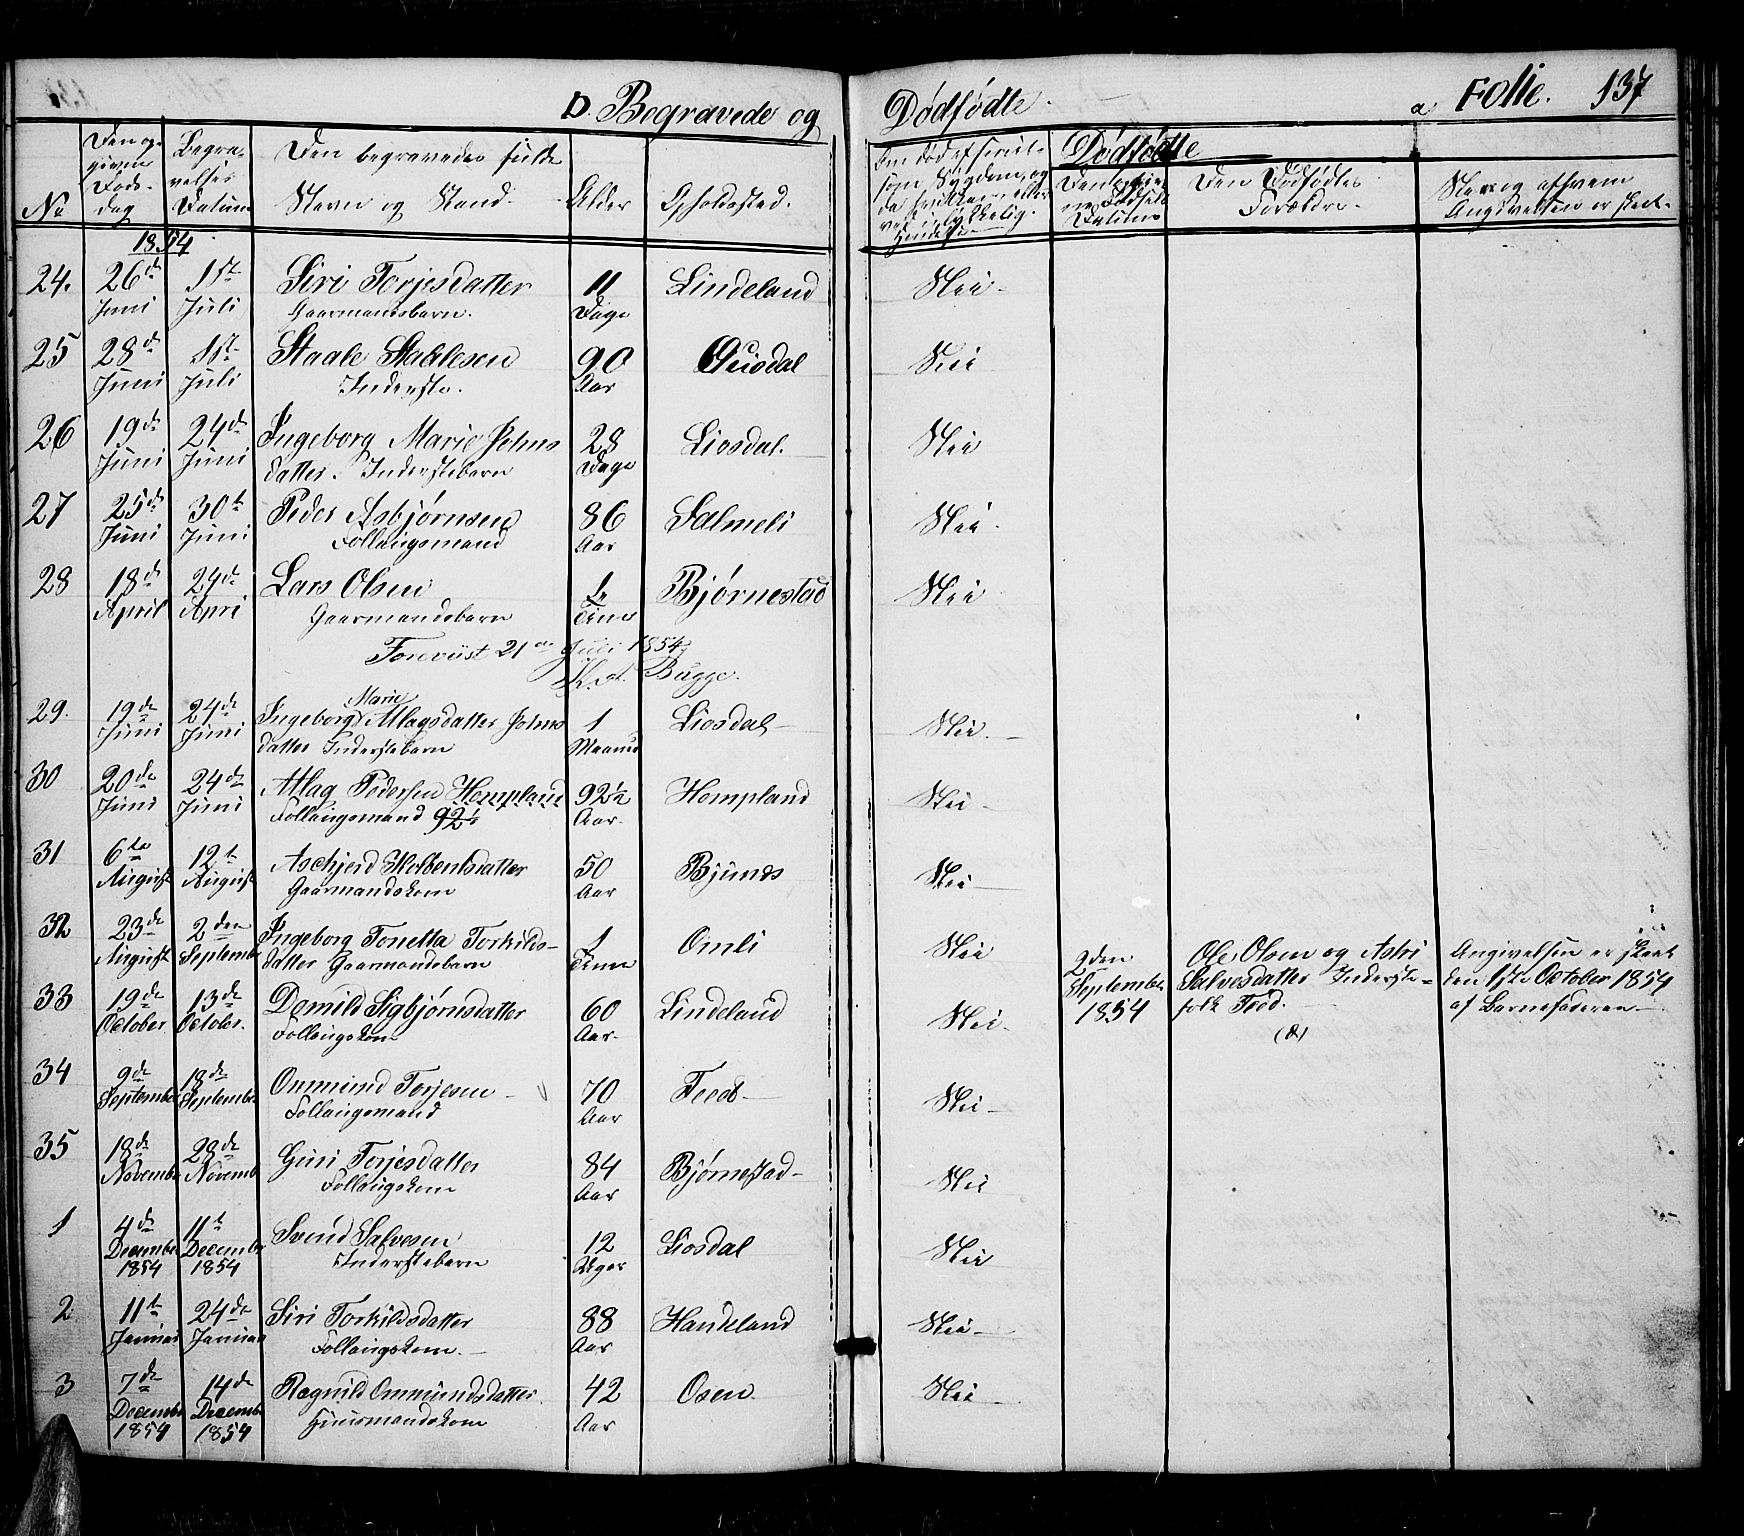 D. Begravede og Dødfødte. a Folie. 137
No
Den op-
given
Døds-
dag
Begra-
velses
Datum
Den begravedes fulde
Navn og Stand.
Alder
Opholdssted.
Dødfødte
Den Dødfødtes
Forældre.
Naar og af hvem
Angivelsen er skeet.
1854
24. 26de 1ste Siri Torjesdatter 11 Lindeland Nei.
Juni Juli Gaarmandsbarn. Dage
25 28de 1ste Staale Staalesen 90 Qvisdal Nei
Juni Juli Inderste. Aar
26 19de 24de Ingeborg Marie Johns 28 Liosdal. Nei
Juni Juni datter. Inderstebarn Dage
27 25de 30te Peder Asbjørnsen 86 Salmeli Nei.
Juni Juni Follaugsmand Aar
28 18de 24de Lars Olsen Bjørnestad Nei
April Apri Gaarmandsbarn Time
Foreviist 21de Juli 1854
Bugge.
Marie
29. 19de 24de Ingeborg Atlagsdatter Johns 1 Liosdal Nei.
Juni Juni datter Inderstebarn Maaned
30 20de 24de Atlag Pedersen Hompland 92½ Hompland Nei
Juni Juni Follaugsmand 92½ Aar.
31 6te 12te Aschjerd 50 Nei
August August Gaarmandskone Aar
32 23de 2den Ingeborg Tonetta Torkilds- 1 Omli Nei
August September datter Gaarmandsbarn Time
2den Ole Olsen og Astri Angivelsen er skeet
September Salvesdatter Inderste- den 1ste October 1854
1854 folk Feed. af Barnefaderen
33 19de 13de Demild Sigbjørnsdatter 60 Lindeland Nei.
October. October. Follaugskone Aar.
34 9de 18de Ommund Torjesen 70 Feed Nei
September September Follaugsmand Aar
35 18de 28de Guri Torjesdatter 84 Bjørnestad Nei
November November Follaugskone Aar
1 4de 11te Svend Salvesen 12 Liosdal Nei
December December Inderstebarn Uger
1854 1854
2 11te 24de Siri Torkildsdatter 88 Handeland Nei
Januar Januar Follaugskone. Aar
3 7de 14de Ragnild Ommundsdatter 42 Osen Nei
December December Huusmandskone Aar
1854 1854